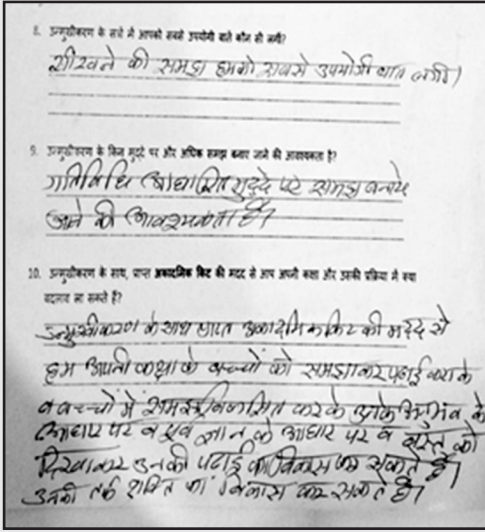 8. उन्मुखीकरण के सत्रों में आपको सबसे उपयोगी बातें कौन सी लगी?
सीखने की समझ हमको सबसे उपयोगी बात लगी।
9. उन्मुखीकरण के किन मुद्दे पर और अधिक समझ बनाए जाने की आवश्यकता है?
गतिविधि आधारित मुद्दे पर समझ बनाये
जाने की आवश्यकता है।
10. उन्मुखीकरण के साथ, प्राप्त अकादमिक किट की मदद से आप अपनी कक्षा और उसकी प्रक्रिया में क्या
बदलाव ला सकते हैं?
उन्मुखीकरण के साथ प्राप्त अकादमिक किट की मदद से
हम अपनी कक्षा के बच्चों को समझाकर पढ़ाई करा के
व बच्चों में समझ विकसित करके उनके अनुभव के
आधार पर व पूर्व ज्ञान के आधार पर व वस्तु को
दिखाकर उनकी पढाई का विकास कर सकते हैं।
उनकी तर्क शक्ति का विकास कर सकते हैं।